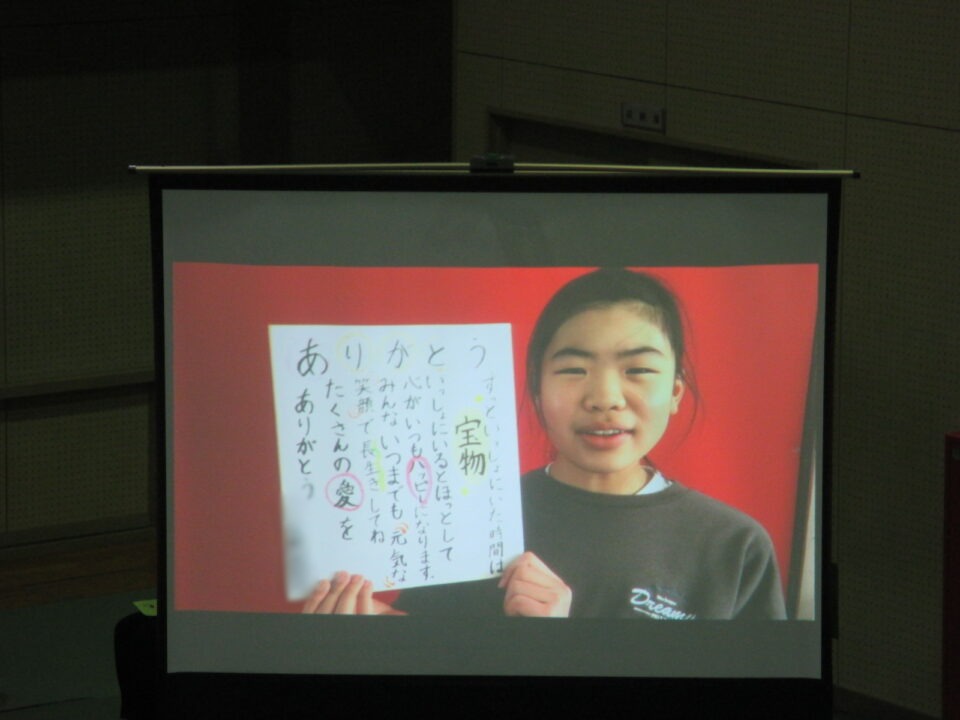 ありがとう
ずっといっしょにいた時間は
宝物
いっしょにいるとほっとして
心がいつもハッピーになります。
みんないつまでも元気な
笑顔で長生きしてね
たくさんの愛を
ありがとう
Dream!!